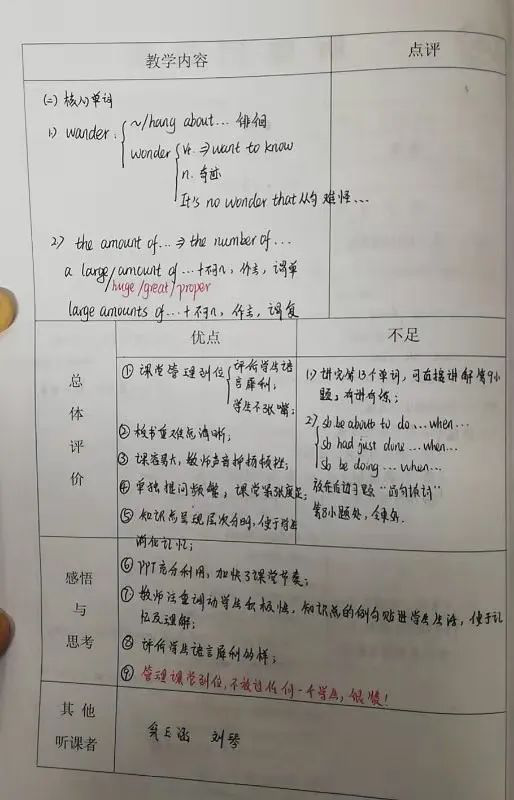 教学内容 点评
(二) 核心单词
1) wander: ~/hang about... 徘徊
wonder vt. ⇒ want to know
n. 奇迹
It's no wonder that从句 难怪...
2) the amount of... ⇒ the number of...
a large/amount of ...+不可n, 作主, 谓单
huge/great/proper
large amounts of ...+不可n, 作主, 谓复
总体评价
优点
① 课堂管理到位 评价学生语
言犀利;
学生不张嘴;
② 板书重难点清晰;
③ 课容易大, 教师声音抑扬顿挫;
④ 单独提问频繁, 课堂紧张度足;
⑤ 知识点呈现层次分明, 便于学生
消化记忆;
不足
1) 讲完第13个单词, 可直接讲解第9小
题, 有讲有练;
2) sb be about to do ... when...
sb had just done ... when...
sb be doing ... when...
放在后边习题
第8小题处,
感悟与思考
⑥ PPT充分利用, 加快了课堂节奏;
⑦ 教师注重调动学生积极性, 知识点的例句贴进学生生活, 便于记
忆及理解;
⑧ 评价学生语言犀利多样;
⑨ 管理课堂到位, 不放过任何一个学生, 很赞!
其他听课者
刘琴